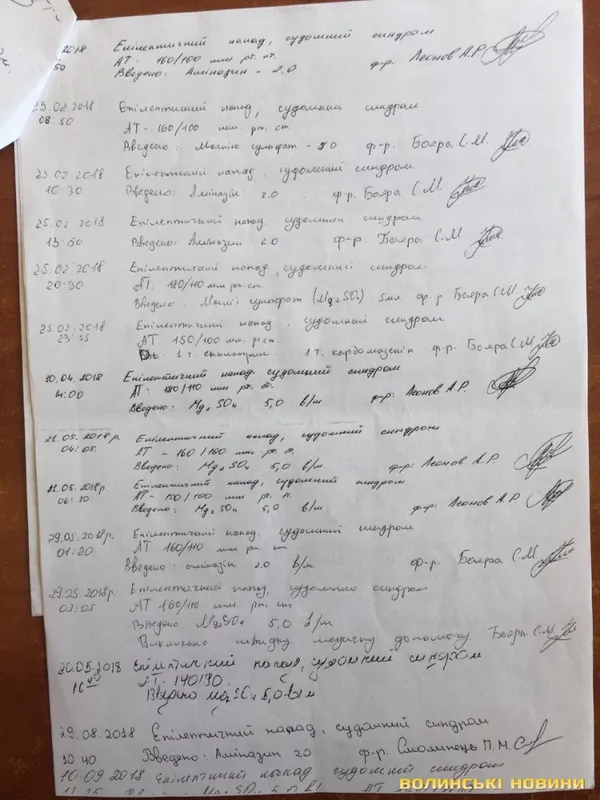 2018 Епілептичний напад, судомний синдром
50 АТ - 160/100 мм рт. ст.
Введено: Аміназин - 2.0 ф-р: Леонов А.Р.
25.02.2018 Епілептичний напад, судомний синдром
08:50 АТ - 160/100 мм. рт. ст.
Введено: Магнію сульфат - 5.0 ф-р. Бояра С.М.
25.02.2018 Епілептичний напад, судомний синдром
10:30 Введено: Аміназін 2.0 ф-р. Бояра С.М.
25.02.2018 Епілептичний напад, судомний синдром
13:50 Введено: Аміназин 2.0 ф-р. Бояра С.М
25.02.2018 Епілептичний напад, судомний синдром
20:30 АТ. 180/110 мм рт. ст.
Введено. Магнії сульфат (MgSO4) 5мл ф-р Бояра С.М.
25.02.2018 Епілептичний напад. судомний синдром
23:55 АТ 150/100 мм. рт. ст.
1т. 1т. карбомазепін ф-р. Бояра С.М.
20.04.2018 Епілептичний напад. судомний синдром
АТ: 180/110 мм рт. ст.
Введено: MgSO4 5,0 в/м ф-р: Леонов А.Р.
21.05.2018р. Епілептичний напад, судомний синдром
04:05. АТ - 160/100 мм рт. ст.
Введено: MgSO4 5,0 в/м ф-р: Леонов А.Р.
21.05.2018р Епілептичний напад, судомний синдром
06:50 АТ - 150/100 мм рт. ст.
Введено: MgSO4 5,0 в/м ф-р: Леонов А.Р.
29.05.2018р. Епілептичний напад. судомний синдром
01:20 АТ 160/110 мм рт. ст
Введено: аміназін 2.0 в/м ф-р. Бояра С.М.
29.05.2018р Епілептичний напад, судомний синдром
03:05 АТ 160/110 мм. рт. ст
Введено MgSO4 5.0 в/м
Викликано швидку медичну допомогу Бояра С.М.
30.05.2018 Епілептичний напад, судомний синдром
АТ - 140/90
Введено MgSO4 5,0 в/м
29.08.2018 Епілептичний напад, судомний синдром
10 40 Введено: Аміназин 2.0 ф-р. Смолинець П.М.
10.09.2018 Епілептичний напад судомний синдром
ВОЛИНСЬКІ НОВИНИ